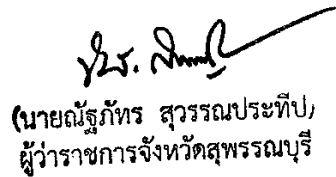 (นายณัฐภัทร สุวรรณประทีป)
ผู้ว่าราชการจังหวัดสุพรรณบุรี